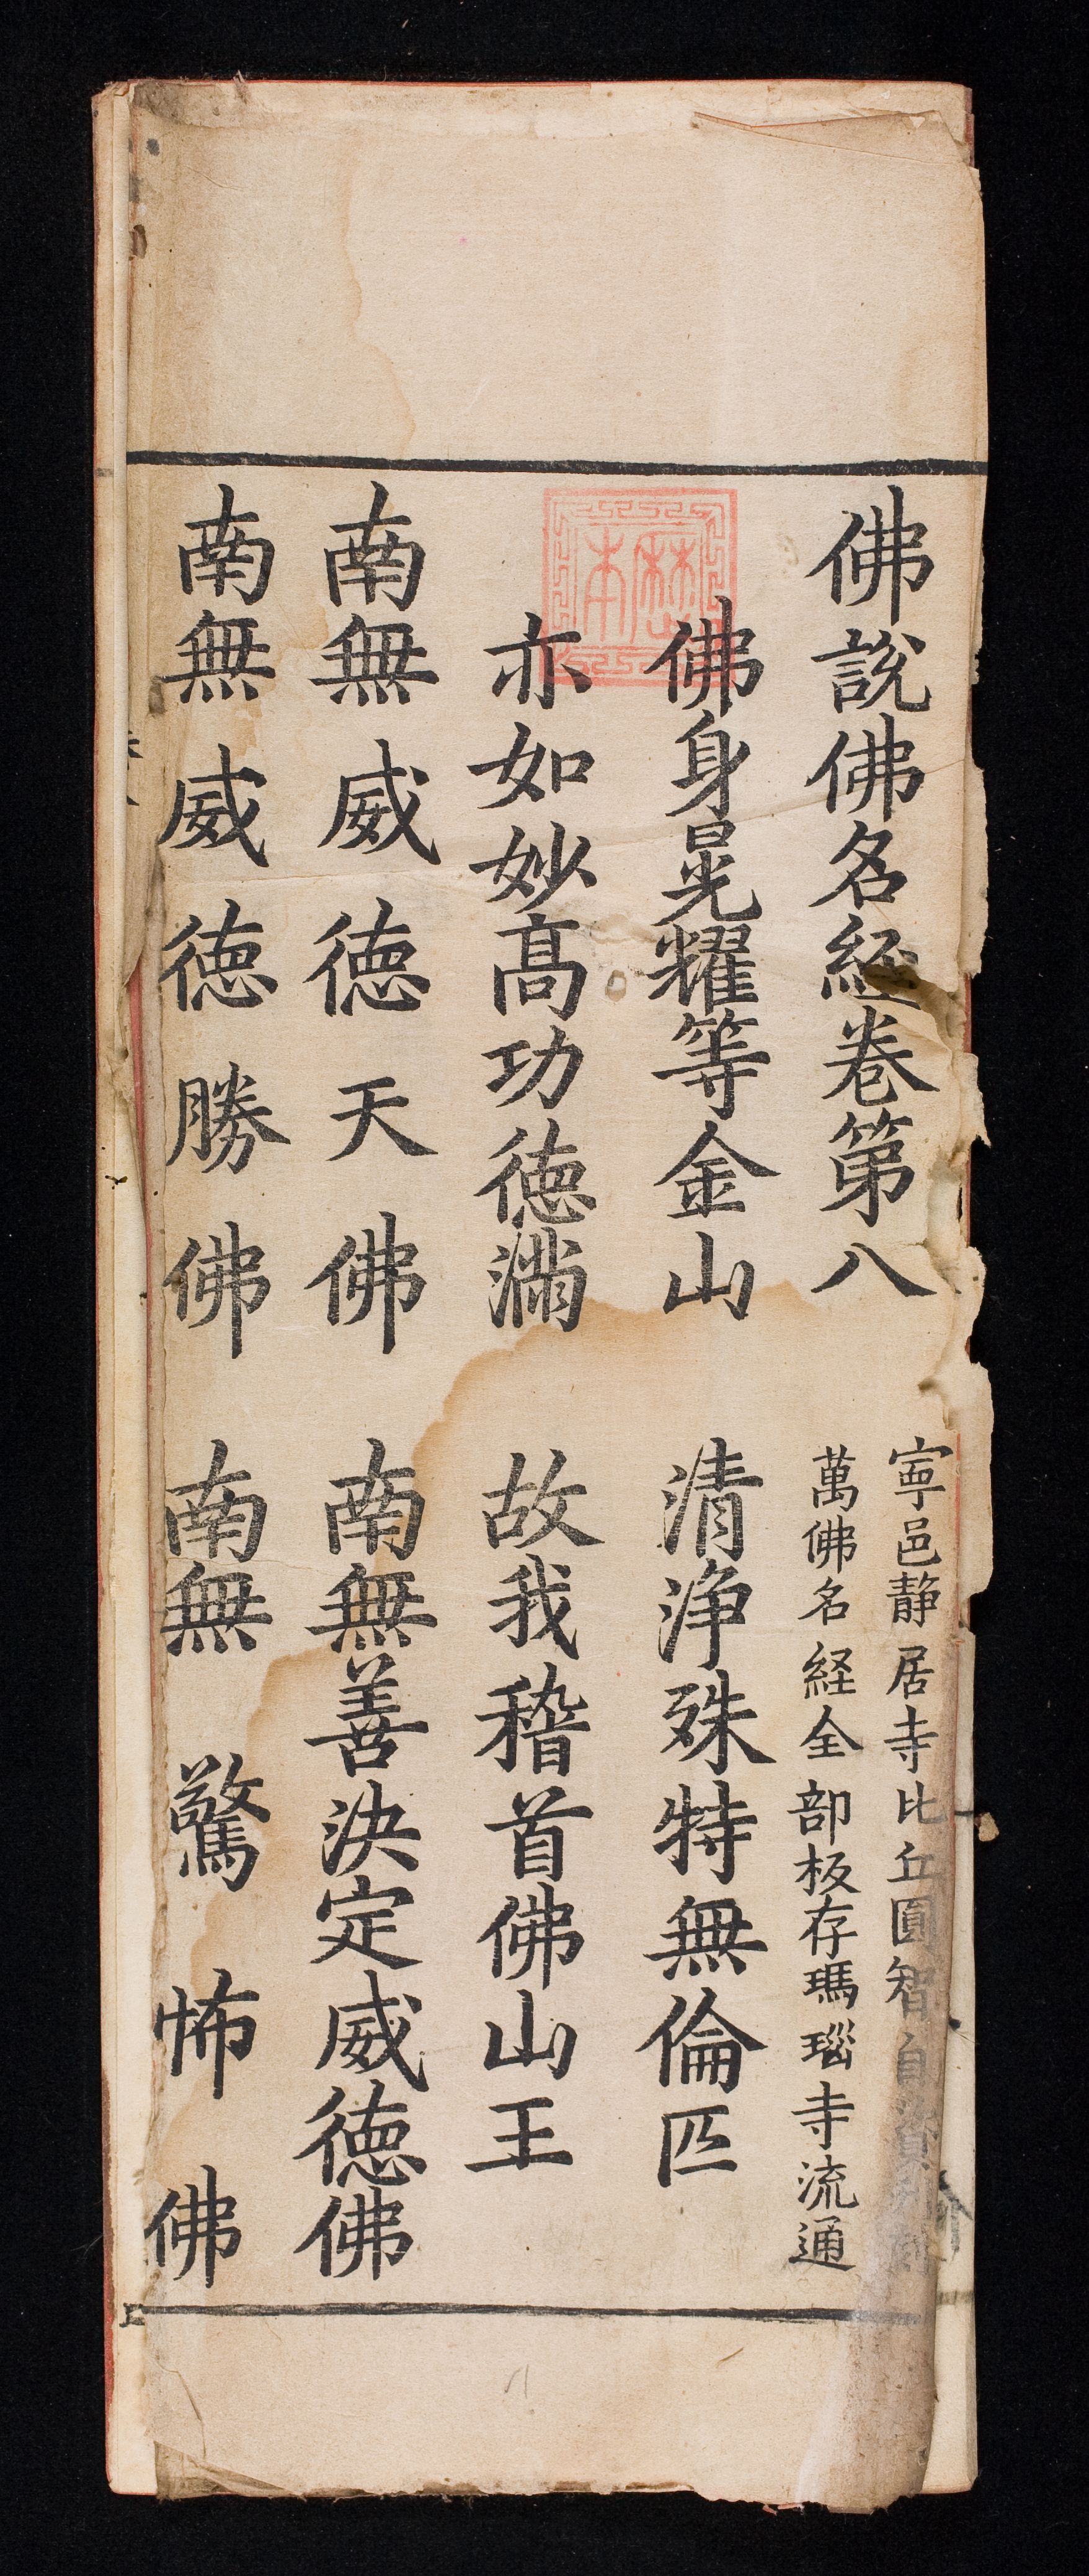 佛說佛名經卷第八
寍邑静居寺比丘圓智自
萬佛名経全部板存瑪瑙寺流通
佛身晃耀等金山 清淨殊特無倫匹
亦如妙高功徳滿 故我稽首佛山王
南無威徳天佛 南無善決定威徳佛
南無威徳勝佛 南無驚怖佛